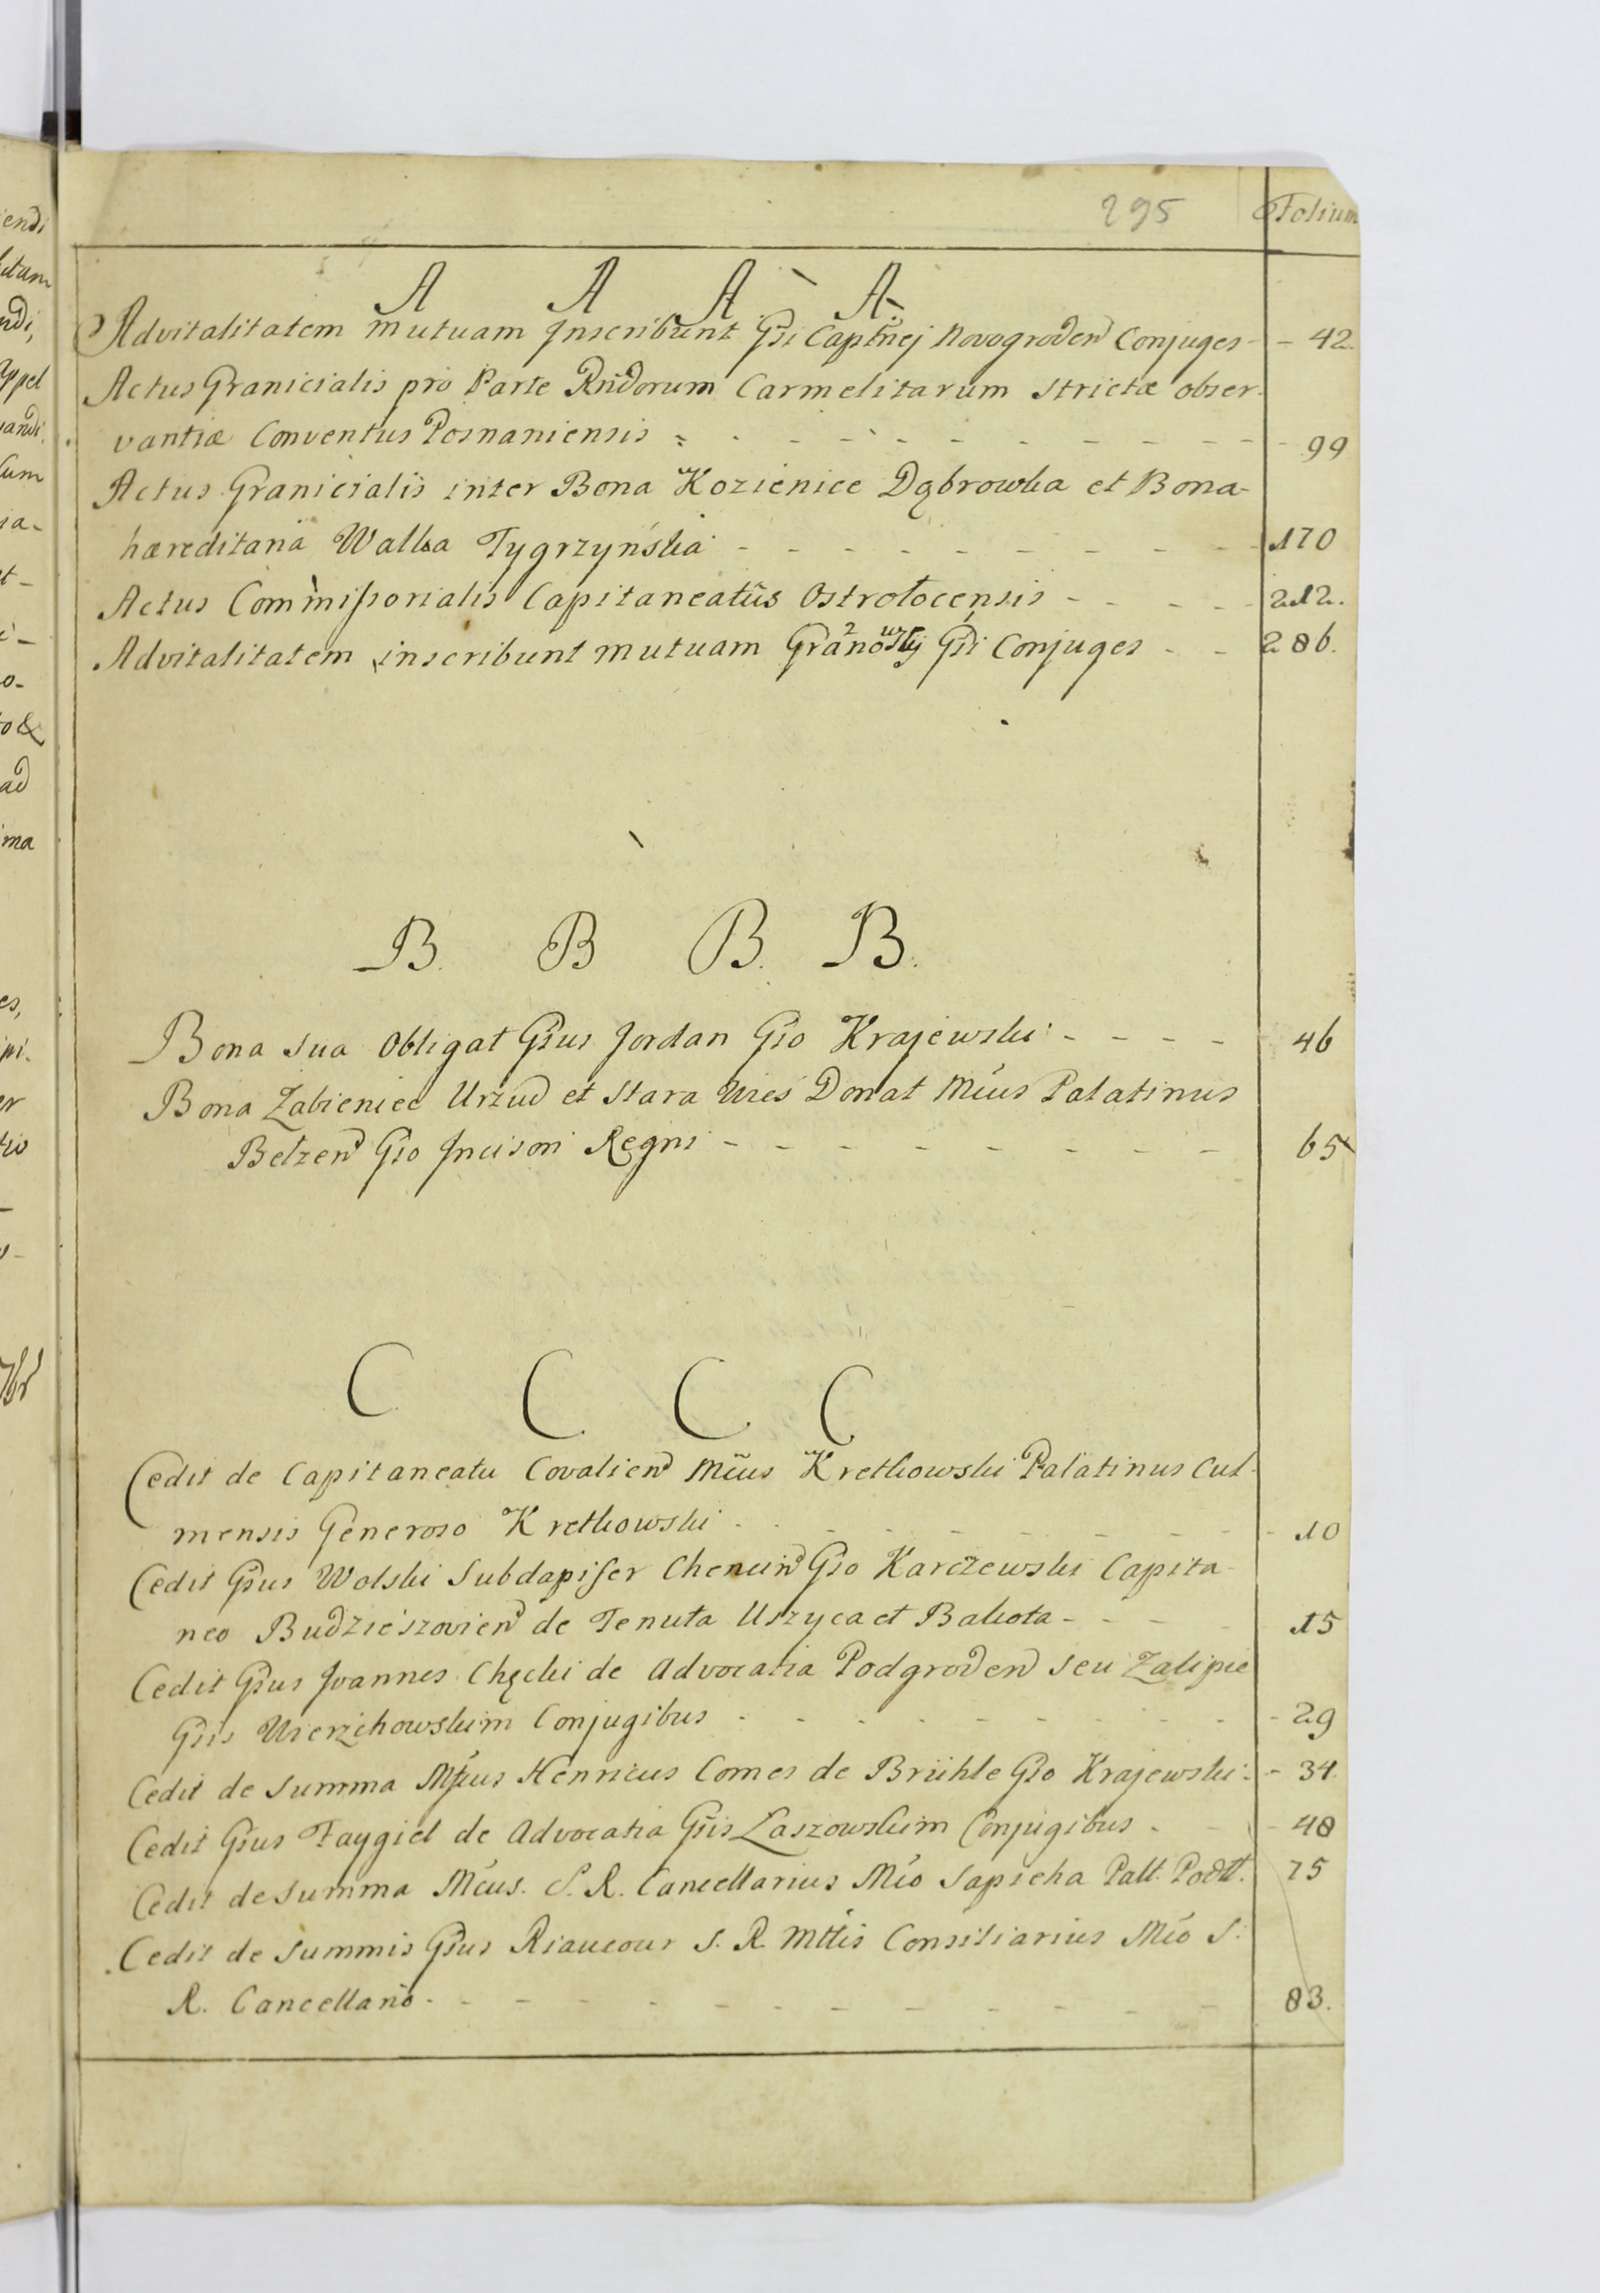 295 Folium
A A A A
Advitalitatem mutuam Inscribunt Gsi Captnej Novogroden Conjuges - - 42.
Actus Granicialis pro Parte Rndorum Carmelitarum strictæ obser-
vantiæ Conventus Posnaniensis - - - - - - - - - 99
Actus Granicialis inter Bona Kozienice Dąbrowka et Bona
hæreditaria Walka Tygrzyńska - - - - - - - - - 170
Actus Commissorialis Capitaneatus Ostrołocensis - - - - 212.
Advitalitatem inscribunt mutuam Gsi Conjuges - - 286.
B. B B. B.
Bona sua obligat Gsus Jordan Gso Krajewski - - - - 46
Bona Zabieniec Urzud et Stara Wieś Donat Mcus Palatinus
Belzen Gso Incisori Regni - - - - - - - - 65
C C C C
Cedit de Capitaneatu Covalien Mcus Kretkowski Palatinus Cul-
mensis Generoso Kretkowski - - - - - - - - - 10
Cedit Gsus Wolski Subdapifer Chencin Gso Karczewski Capita-
neo Budzieszovien de Tenuta Uszyca et Bakota - - - 15
Cedit Gsus Joannes Chęcki de Advocatia Podgroden seu Zalipie
Gsis Wierzchowskim Conjugibus - - - - - - - - 29
Cedit de Summa Mcus Henricus Comes de Brühle Gso Krajewski - - 34.
Cedit Gsus Faygiel de Advocatia Gsis Laszowskim Conjugibus - - 48
Cedit de Summa Mcus. S. R. Cancellarius Mco Sapieha Palt. Podl. 75
Cedit de Summis Gsus Riaucour S. R. Mttis Consiliarius Mco S.
R. Cancellario - - - - - - - - - - - 83.